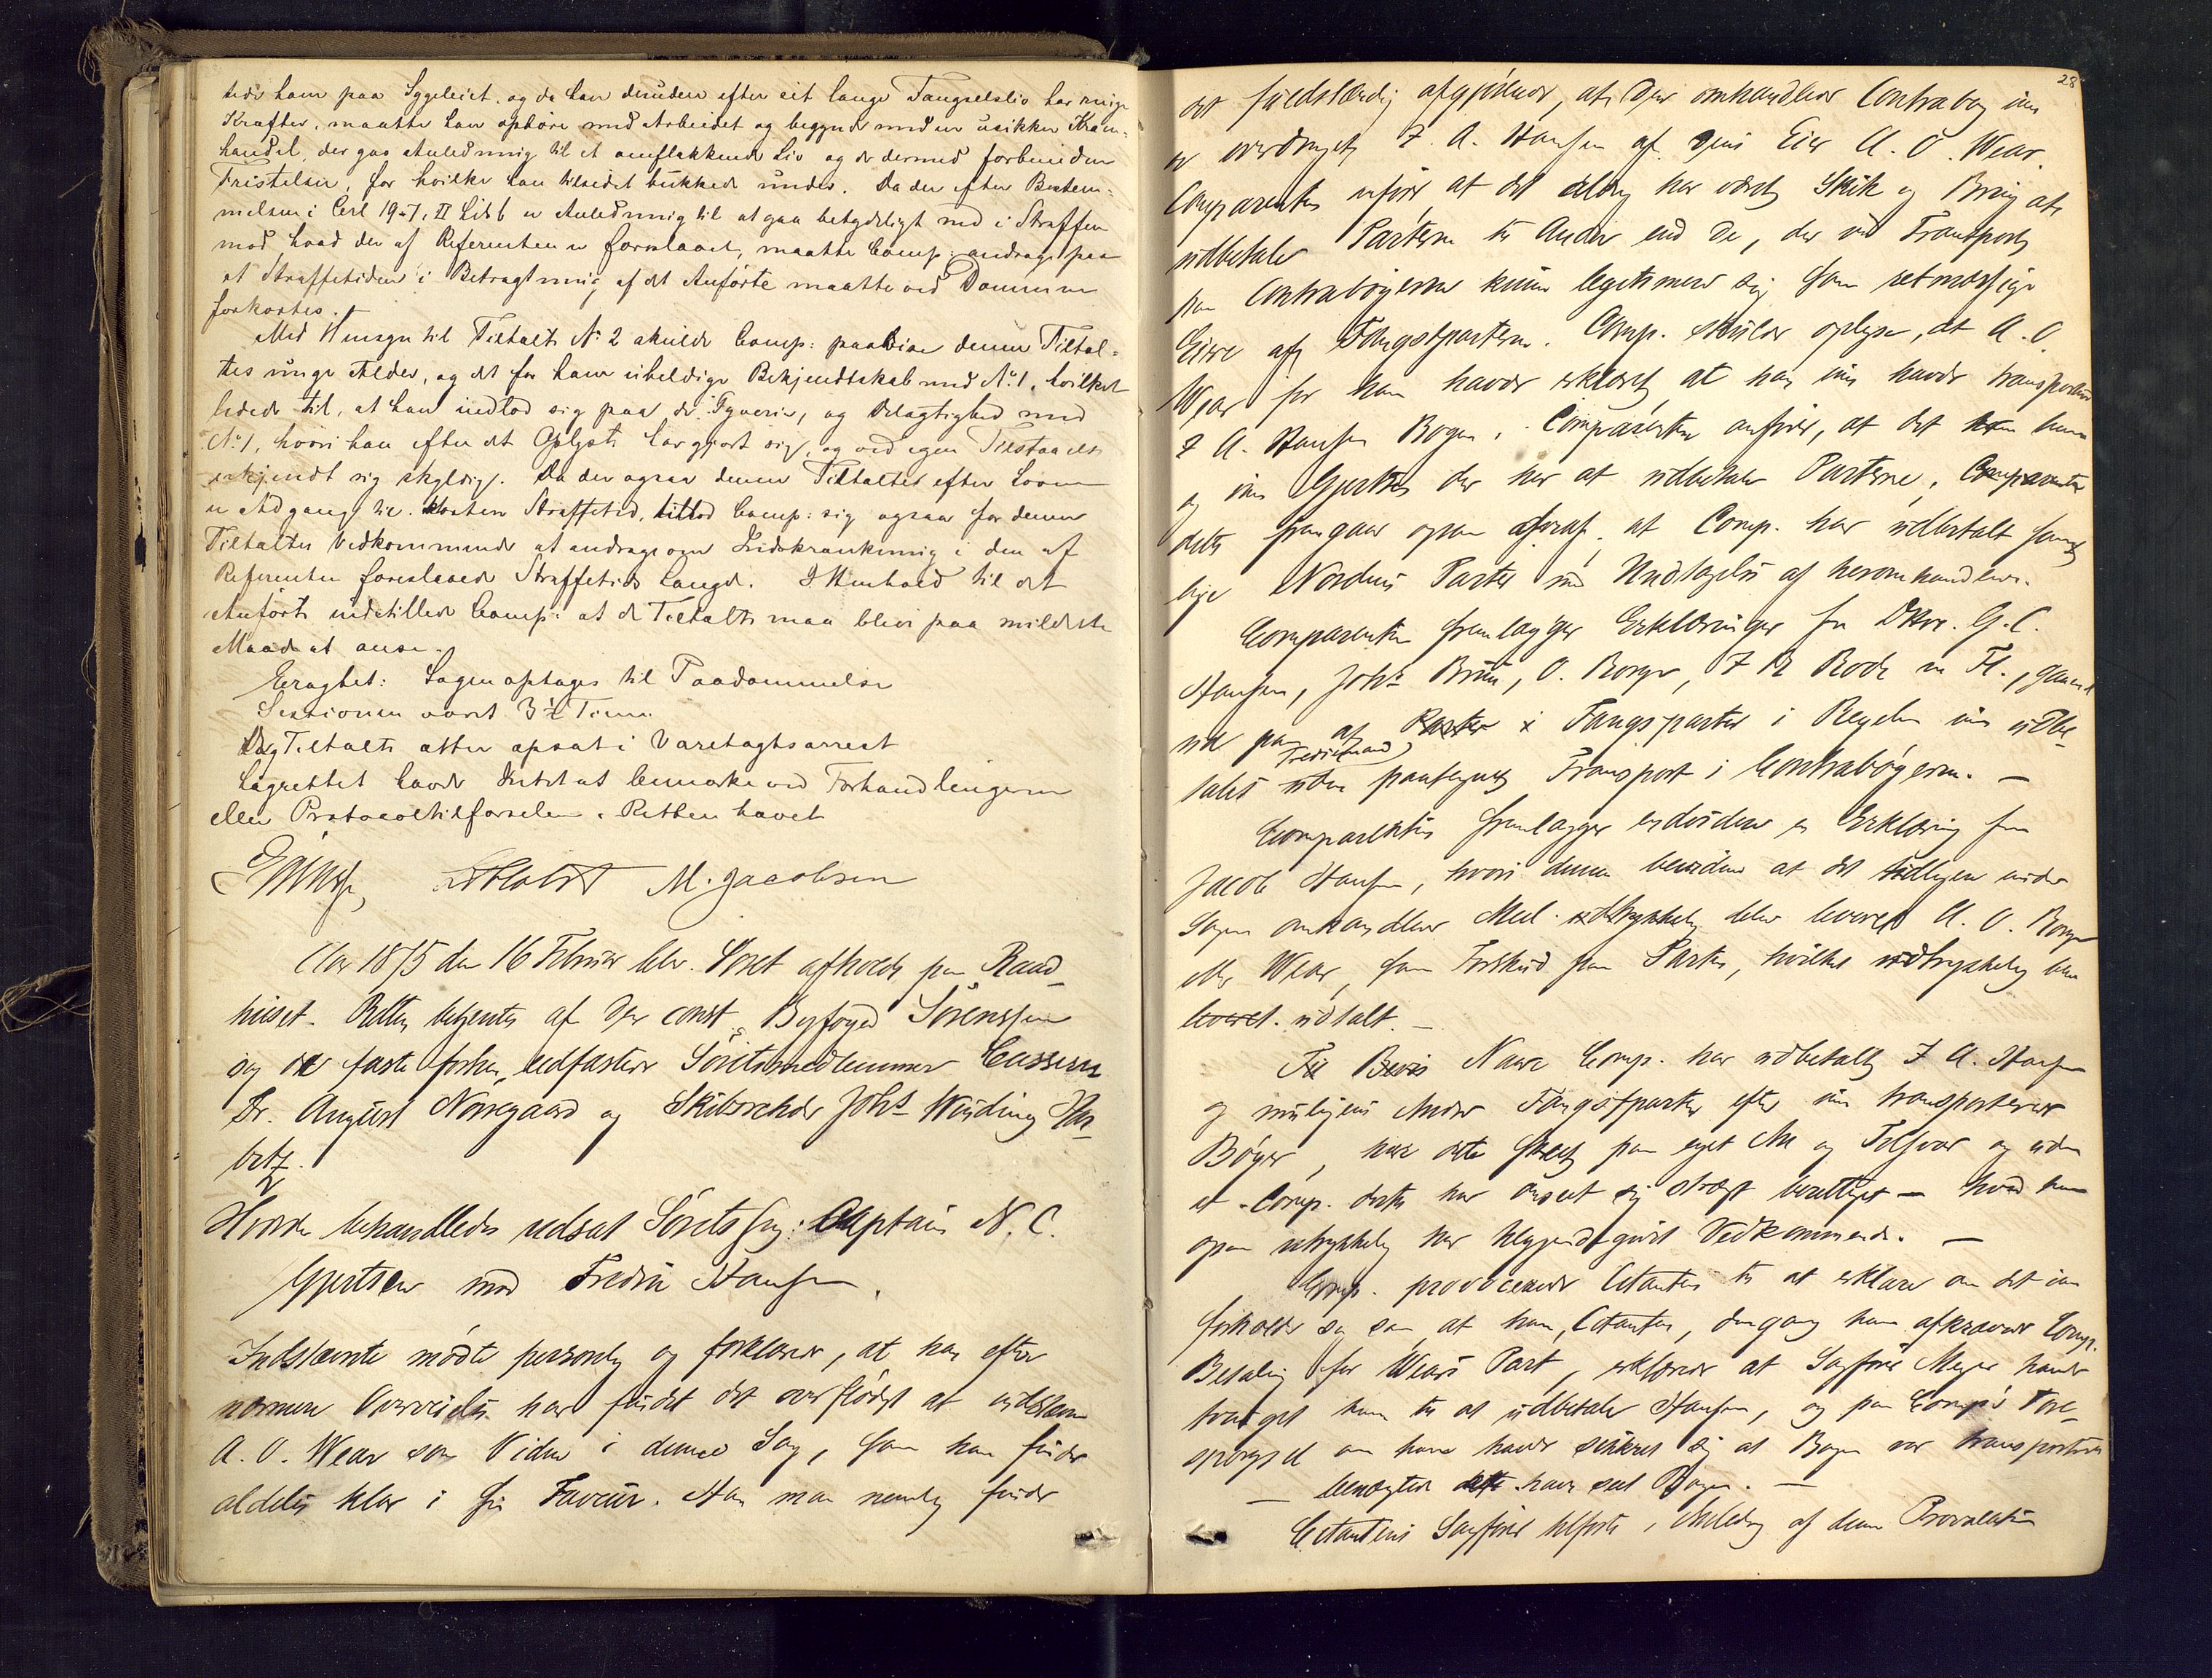 tede ham paa Sygeleiet, og da han desuden efter sit lange Fangselsliv har ringe
Kræfter, maatte han ophøre med Arbeidet og begynde med en usikker Kram-
handel, der gav Anledning til et omflakkende Liv og de dermed forbundne
Fristelser, for hvilke han tilsidst bukkede under. Da der efter Bestem-
melsen i Crl 19-7, II Litr b er Anledning til at gaa betydeligt ned i Straffen
mod hvad der af Referenten er foreslaaet, maatte Comp: andrage paa
at Straffetiden i Betragtning af det Anførte maatte ved Dommen
forkortes.
Med Hensyn til Tiltalte No 2 skulde Comp: paavise denne Tiltal-
tes unge Alder, og det for ham uheldige Bekjendtskab med No 1, hvilket
ledede til, at han indlod sig paa de Tyverier, og Delagtighed med
No 1, hvori han efter det Oplyste har gjort sig, og ved egen Tilstaaelse
erkjendt sig skyldig. Da der ogsaa denne Tiltaltes efter Loven
er Adgang til kortere Straffetid, tillod Comp: sig ogsaa for denne
Tiltaltes Vedkommende at andrage om Indskrænkning i den af
Referenten foreslaaede Straffetids Længde. I Henhold til det
Anførte indstillede Comp: at de Tiltalte maa blive paa mildeste
Maade at anse.
Eragtet: Sagen optages til Paadømmelse
Sessionen varet 3½ Time.
Tiltalte atter opsat i Varetagtsarrest
Lagrettet havde Intet at bemærke ved Forhandlingerne
eller Protocoltilførselen. Retten hævet
M. Jacobsen
Aar 1875 den 16 Februar blev Søret afholdt paa Raad-
huset. Retten betjentes af den const. Byfoged Sørenssen
og de faste forhen edfæstede Søretsmedlemmer Casserer
Fr. August Norregaard og Skibsreder Johs Winding Har-
bitz.
Hvorda behandledes udsat Søretssag: Captain N. C.
Gjertsen mod Fredrik Hansen.
Indstævnte mødte personlig og forklarede, at han efter
nærmere Overveielse har fundet det overflødigt at indstevne
A. O. Wear som Vidne i denne Sag, som han finder
aldeles klar i sin Faveur. Han maa nemlig finde
28
det fuldstændig afgjørende, at den omhandlede Contrabog inn
er overdraget F. A. Hansen af dens Eier A. O. Wear.
Comparenten anfører at det aldrig har været Skik og Brug at
udbetale Parterne til Andre end De, der ved Transport
paa Contrabøgerne kunne legitimere sig som retmæssige
Eiere af Fangstparterne. Comp. skulde oplyse, at A. O.
Wear for ham havde erklæret at han inn havde transporteret
F A. Hansen Bogen. Comparenten anfører, at det er ham
og inn Gjertsen der har at udbetale Parterne, Comparenten
dette fremgaar ogsaa deraf, at Comp. har udbetalt samt-
lige Nordens Parter med Undtagelse af heromhandlede.
Comparenten fremlægger Erklæringer fra DHrr. G. C.
Hansen, Johs Bruun, O. Borge, F M Rode m Fl., gaaende
ud paa at Fangstparter i Regelen inn udbe-
tales uden paategnet Transport i Contrabøgerne. —
Comparenten fremlægger endvidere en Erklæring fra
Jacob Hansen, hvori denne bevidner at det tidligere under
Sagen omhandlede Meel udtrykkelig blev leveret A. O. Borge
eller Wear, som Forskud paa Parten, hvilket udtrykkelig blev
leveret. udtalt. —
Naar Comp. har udbetalt F A. Hansen
og muligens Andre Fangstparter efter inn transporterede
Bøger, har dette skeet paa eget An og Tilsvar og uden
at Comp. dertil har anseet sig strængt berettiget — hvad han
ogsaa udtrykkelig har tilkjendegivet Vedkommende. —
Comp. provocerede Citanten til at erklære om det inn
forholder sig saa at han, Citanten, dengang han afkrævede Comp.
Betaling for Wears Part, erklærede at Sagfører Meyer havde
tvunget ham til at udbetale Hansen, og paa Comp's Fore-
spørgsel om han havde sikkret sig at Bogen var transporteret
— benægtede at have seet Bogen. —
Citantens Sagfører tilførte i Anledning af denne Provocation